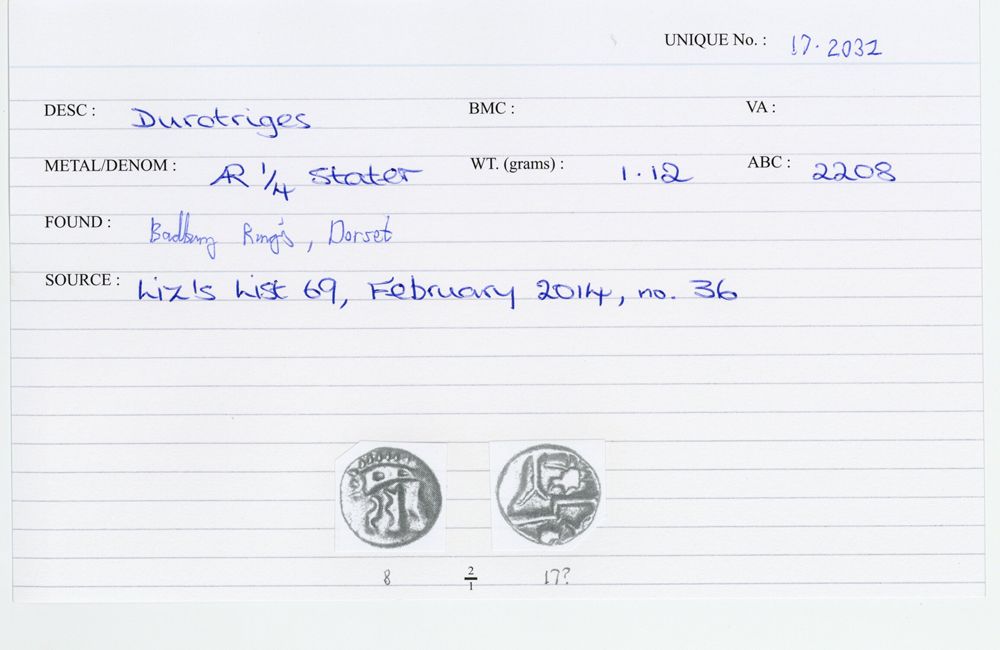 UNIQUE No. : 17.2032
DESC : Durotriges BMC : VA :
METAL/DENOM : AR 1/4 stater WT. (grams) : 1.12 ABC : 2208
FOUND : Badbury Rings, Dorset
SOURCE : Liz's List 69, February 2014, no. 36
8 2/1 17?